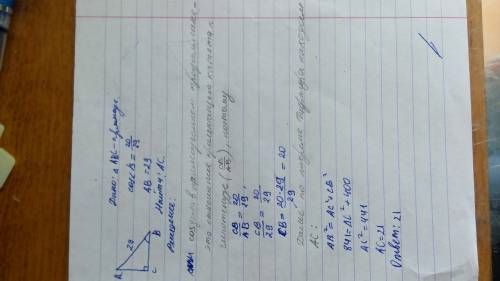 A
29
C
B
Дано: △ ABC - прямоуг.
cos∠B = 20/29
AB = 29
Найти: AC.
Решение:
косинус в прямоугольном треугольнике -
это отношение прилежащего катета к
гипотенузе (CB/AB), поэтому
CB/AB = 20/29,
CB/29 = 20/29
CB = 20·29/29 = 20
Далее по теореме Пифагора находим
AC:
AB² = AC² + CB²
841 = AC² + 400
AC² = 441
AC = 21
Ответ: 21